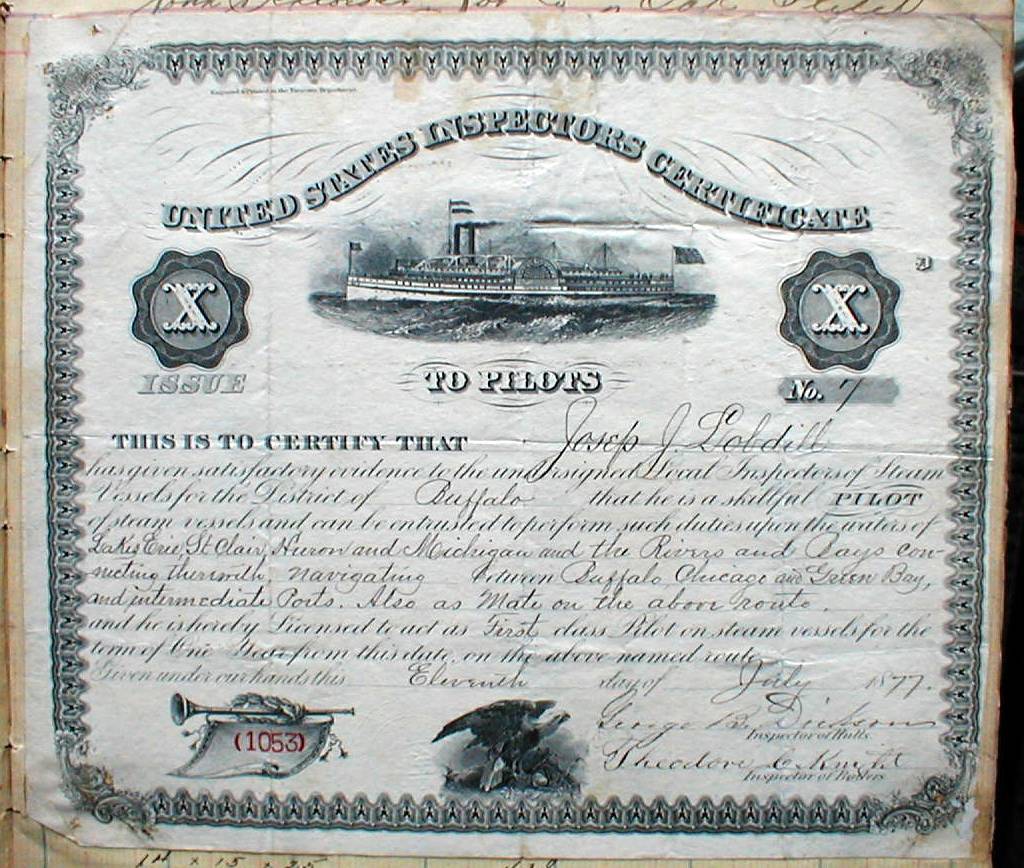 Engraved & Printed at the Treasury Department.
UNITED STATES INSPECTORS CERTIFICATE
X
X
ISSUE
TO PILOTS
No. 7
THIS IS TO CERTIFY THAT Joseph J. Lobdill
has given satisfactory evidence to the undersigned Local Inspectors of Steam
Vessels for the District of Buffalo that he is a skillful PILOT
of steam vessels and can be entrusted to perform such duties upon the waters of
Lakes Erie, St Clair, Huron and Michigan and the Rivers and Bays con-
necting therewith, navigating between Buffalo, Chicago and Green Bay,
and intermediate Ports. Also as Mate on the above route.
and he is hereby Licensed to act as First class Pilot on steam vessels for the
term of One Year from this date, on the above named route
Given under our hands this Eleventh day of July 1877.
George B. Dickson
Inspector of Hulls.
(1053)
Theodore C. Knight
Inspector of Boilers